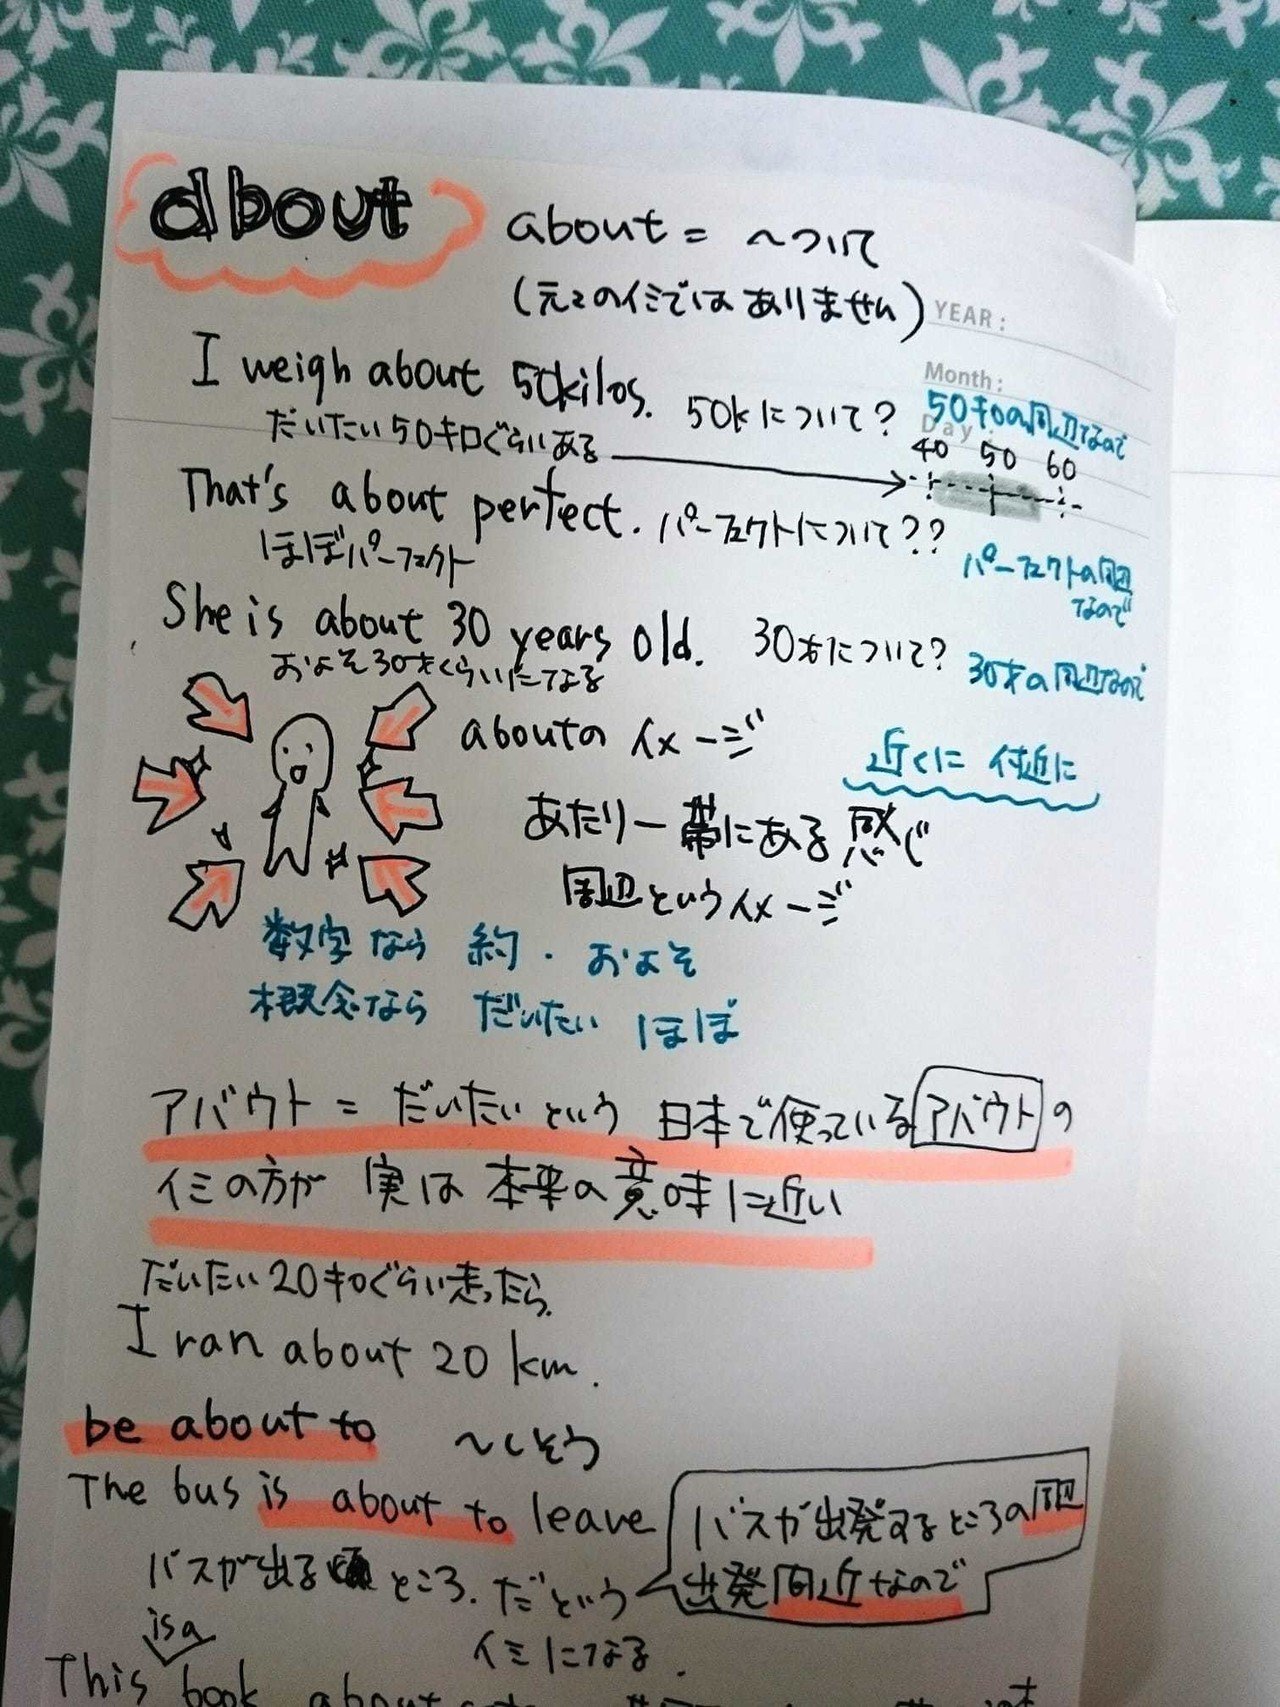 about
about = 〜ついて
(元々のイミではありません)
YEAR :
Month :
Day
I weigh about 50kilos.
50kについて?
50キロの周辺なので
だいたい50キロぐらいある
40 50 60
That's about perfect.
パーフェクトについて??
ほぼパーフェクト
パーフェクトの周辺
なので
She is about 30 years old.
30才について?
30才の周辺なので
およそ30才くらいになる
aboutの イメージ
近くに 付近に
あたり一帯にある感じ
周辺というイメージ
数字なら 約・およそ
概念なら だいたい ほぼ
アバウト = だいたいという 日本で使っているアバウトの
イミの方が 実は 本来の意味に近い
だいたい20キロぐらい走ったら.
I ran about 20 km.
be about to 〜しそう
The bus is about to leave
バスが出発するところの周辺
出発間近なので
バスが出る ところ. だという
イミになる.
is a
This book about